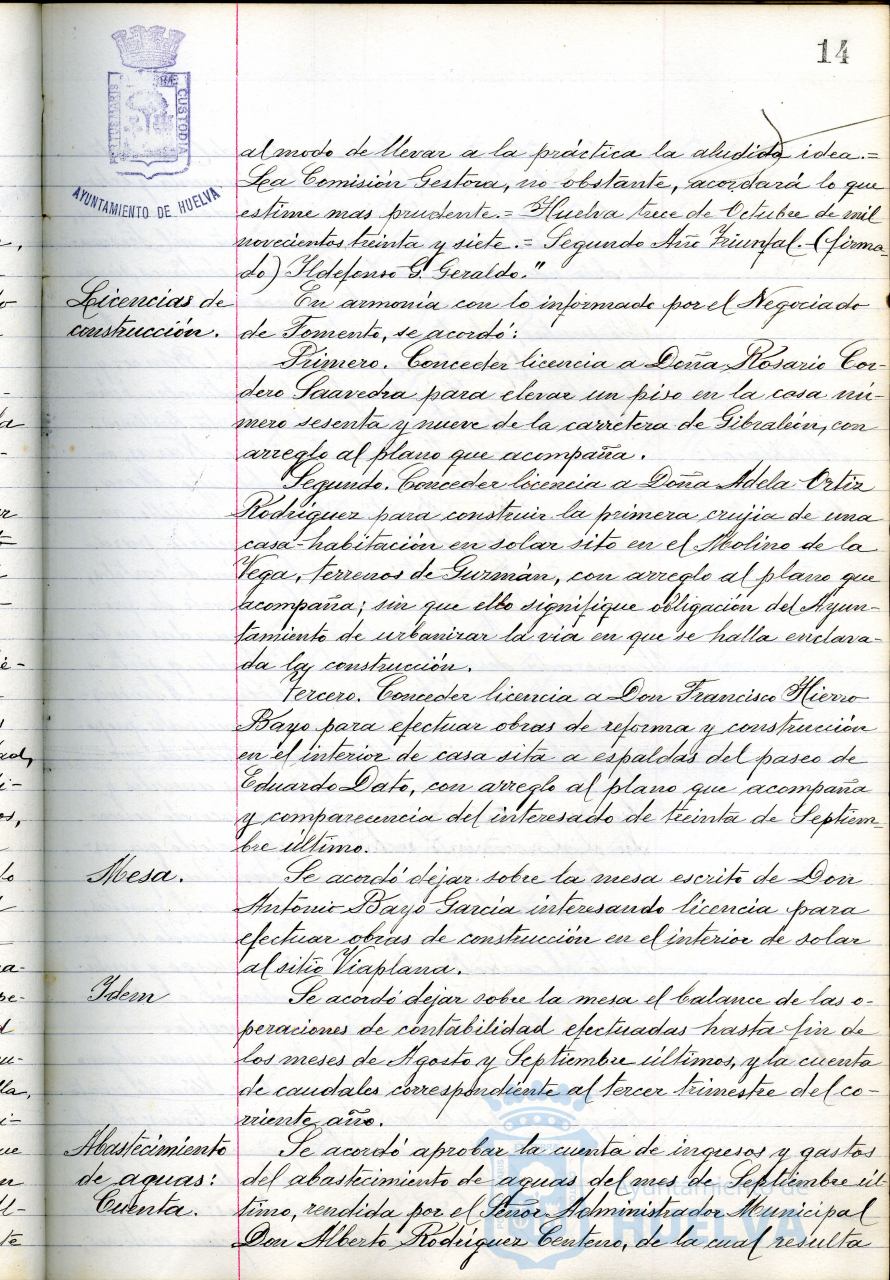 14
PORTUS MARIS
CUSTODIA
AYUNTAMIENTO DE HUELVA
al modo de llevar a la práctica la aludida idea.=
La Comisión Gestora, no obstante, acordará lo que
estime mas prudente.= Huelva trece de Octubre de mil
novecientos treinta y siete.= Segundo Año Triunfal.-(firma-
do) Ildefonso G. Geraldo."
Licencias de
construcción.
En armonía con lo informado por el Negociado
de Fomento, se acordó:
Primero. Conceder licencia a Doña Rosario Cor-
dero Saavedra para elevar un piso en la casa nú-
mero sesenta y nueve de la carretera de Gibraleón, con
arreglo al plano que acompaña.
Segundo. Conceder licencia a Doña Adela Ortiz
Rodríguez para construir la primera crujia de una
casa-habitación en solar sito en el Molino de la
Vega, terrenos de Guzmán, con arreglo al plano que
acompaña; sin que ello signifique obligación del Ayun-
tamiento de urbanizar la via en que se halla enclava-
da la construcción.
Tercero. Conceder licencia a Don Francisco Hierro
Bayo para efectuar obras de reforma y construcción
en el interior de casa sita a espaldas del paseo de
Eduardo Dato, con arreglo al plano que acompaña
y comparecencia del interesado de treinta de Septiem-
bre último.
Mesa.
Se acordó dejar sobre la mesa escrito de Don
Antonio Bayo García interesando licencia para
efectuar obras de construcción en el interior de solar
al sitio Viaplana.
Idem
Se acordó dejar sobre la mesa el balance de las o-
peraciones de contabilidad efectuadas hasta fin de
los meses de Agosto y Septiembre últimos, y la cuenta
de caudales correspondiente al tercer trimestre del co-
rriente año.
Abastecimiento
de aguas:
Cuenta.
Se acordó aprobar la cuenta de ingresos y gastos
del abastecimiento de aguas del mes de Septiembre úl-
timo, rendida por el Señor Administrador Municipal
Don Alberto Rodríguez Centeno, de la cual resulta
Ayuntamiento de
HUELVA